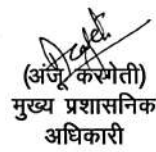 (अंजू करगेती)
मुख्य प्रशासनिक
अधिकारी